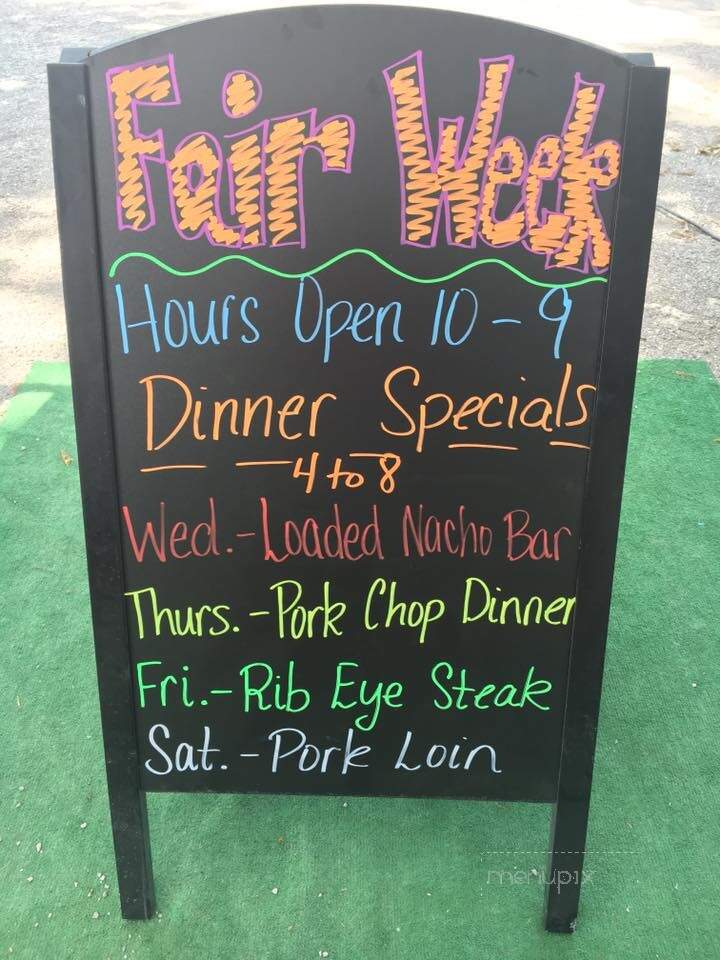 Fair Week
Hours Open 10 - 9
Dinner Specials
4 to 8
Wed. - Loaded Nacho Bar
Thurs. - Pork Chop Dinner
Fri. - Rib Eye Steak
Sat. - Pork Loin
menupix